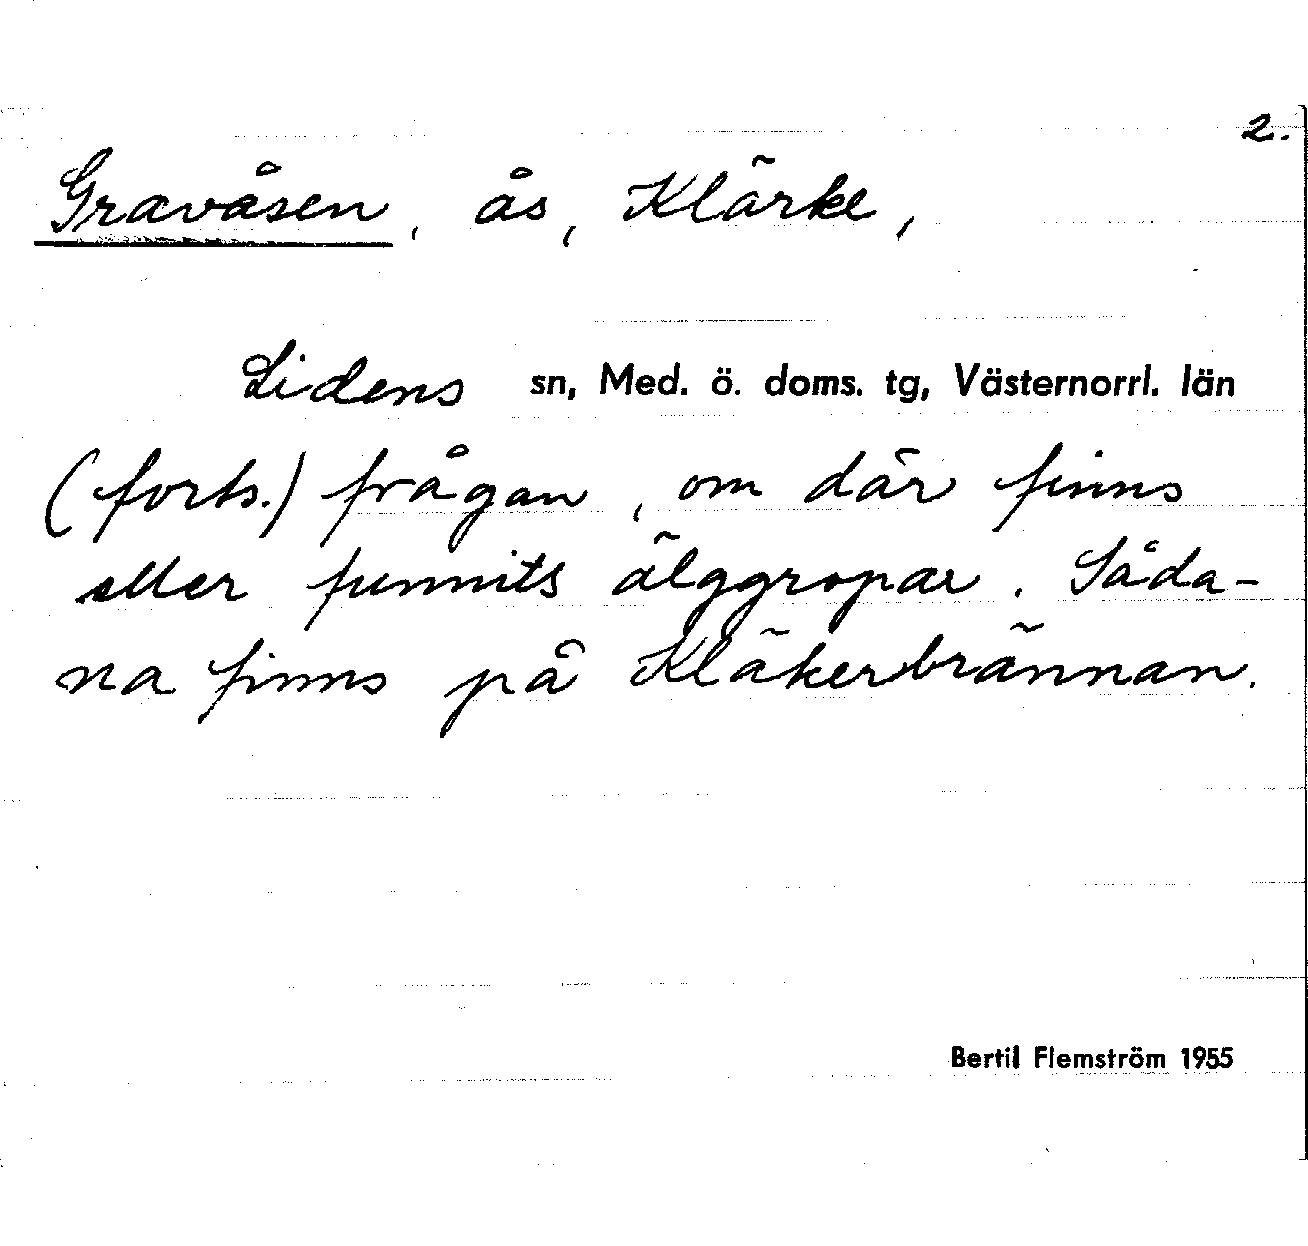 2.
Gravåsen, ås, Klärke,
Lidens sn, Med. ö. doms. tg, Västernorrl. län
(forts.) frågan, om där finns
eller funnits älggropar. Såda-
na finns på Kläkerbrännan.
Bertil Flemström 1955